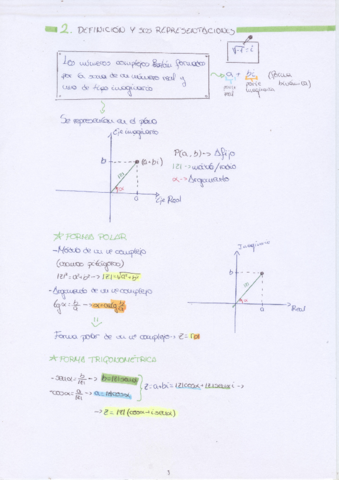 2. DEFINICIÓN Y SUS REPRESENTACIONES
√-1 = i
Los números complejos están formados
por la suma de un número real y
uno de tipo imaginario
a + bi (forma
parte parte binómica)
real imaginaria
Se representan en el plano
Eje imaginario
b
P(a, b) → Afijo
|z| → módulo/radio
α → Argumento
a
Eje Real
★ FORMA POLAR
- Módulo de un nº complejo
(teorema pitágoras)
|z|² = a² + b² → |z| = √a² + b²
- Argumento de un nº complejo
tg α = b/a → α = arctg b/a
Forma polar de un nº complejo → z = rα
Imaginario
b
a
Real
★ FORMA TRIGONOMÉTRICA
- senα = b/|z| → b = |z| senα
- cosα = a/|z| → a = |z| cosα
z = a + bi = |z| cosα + |z| senα i →
→ z = |z| (cosα + i senα)
1